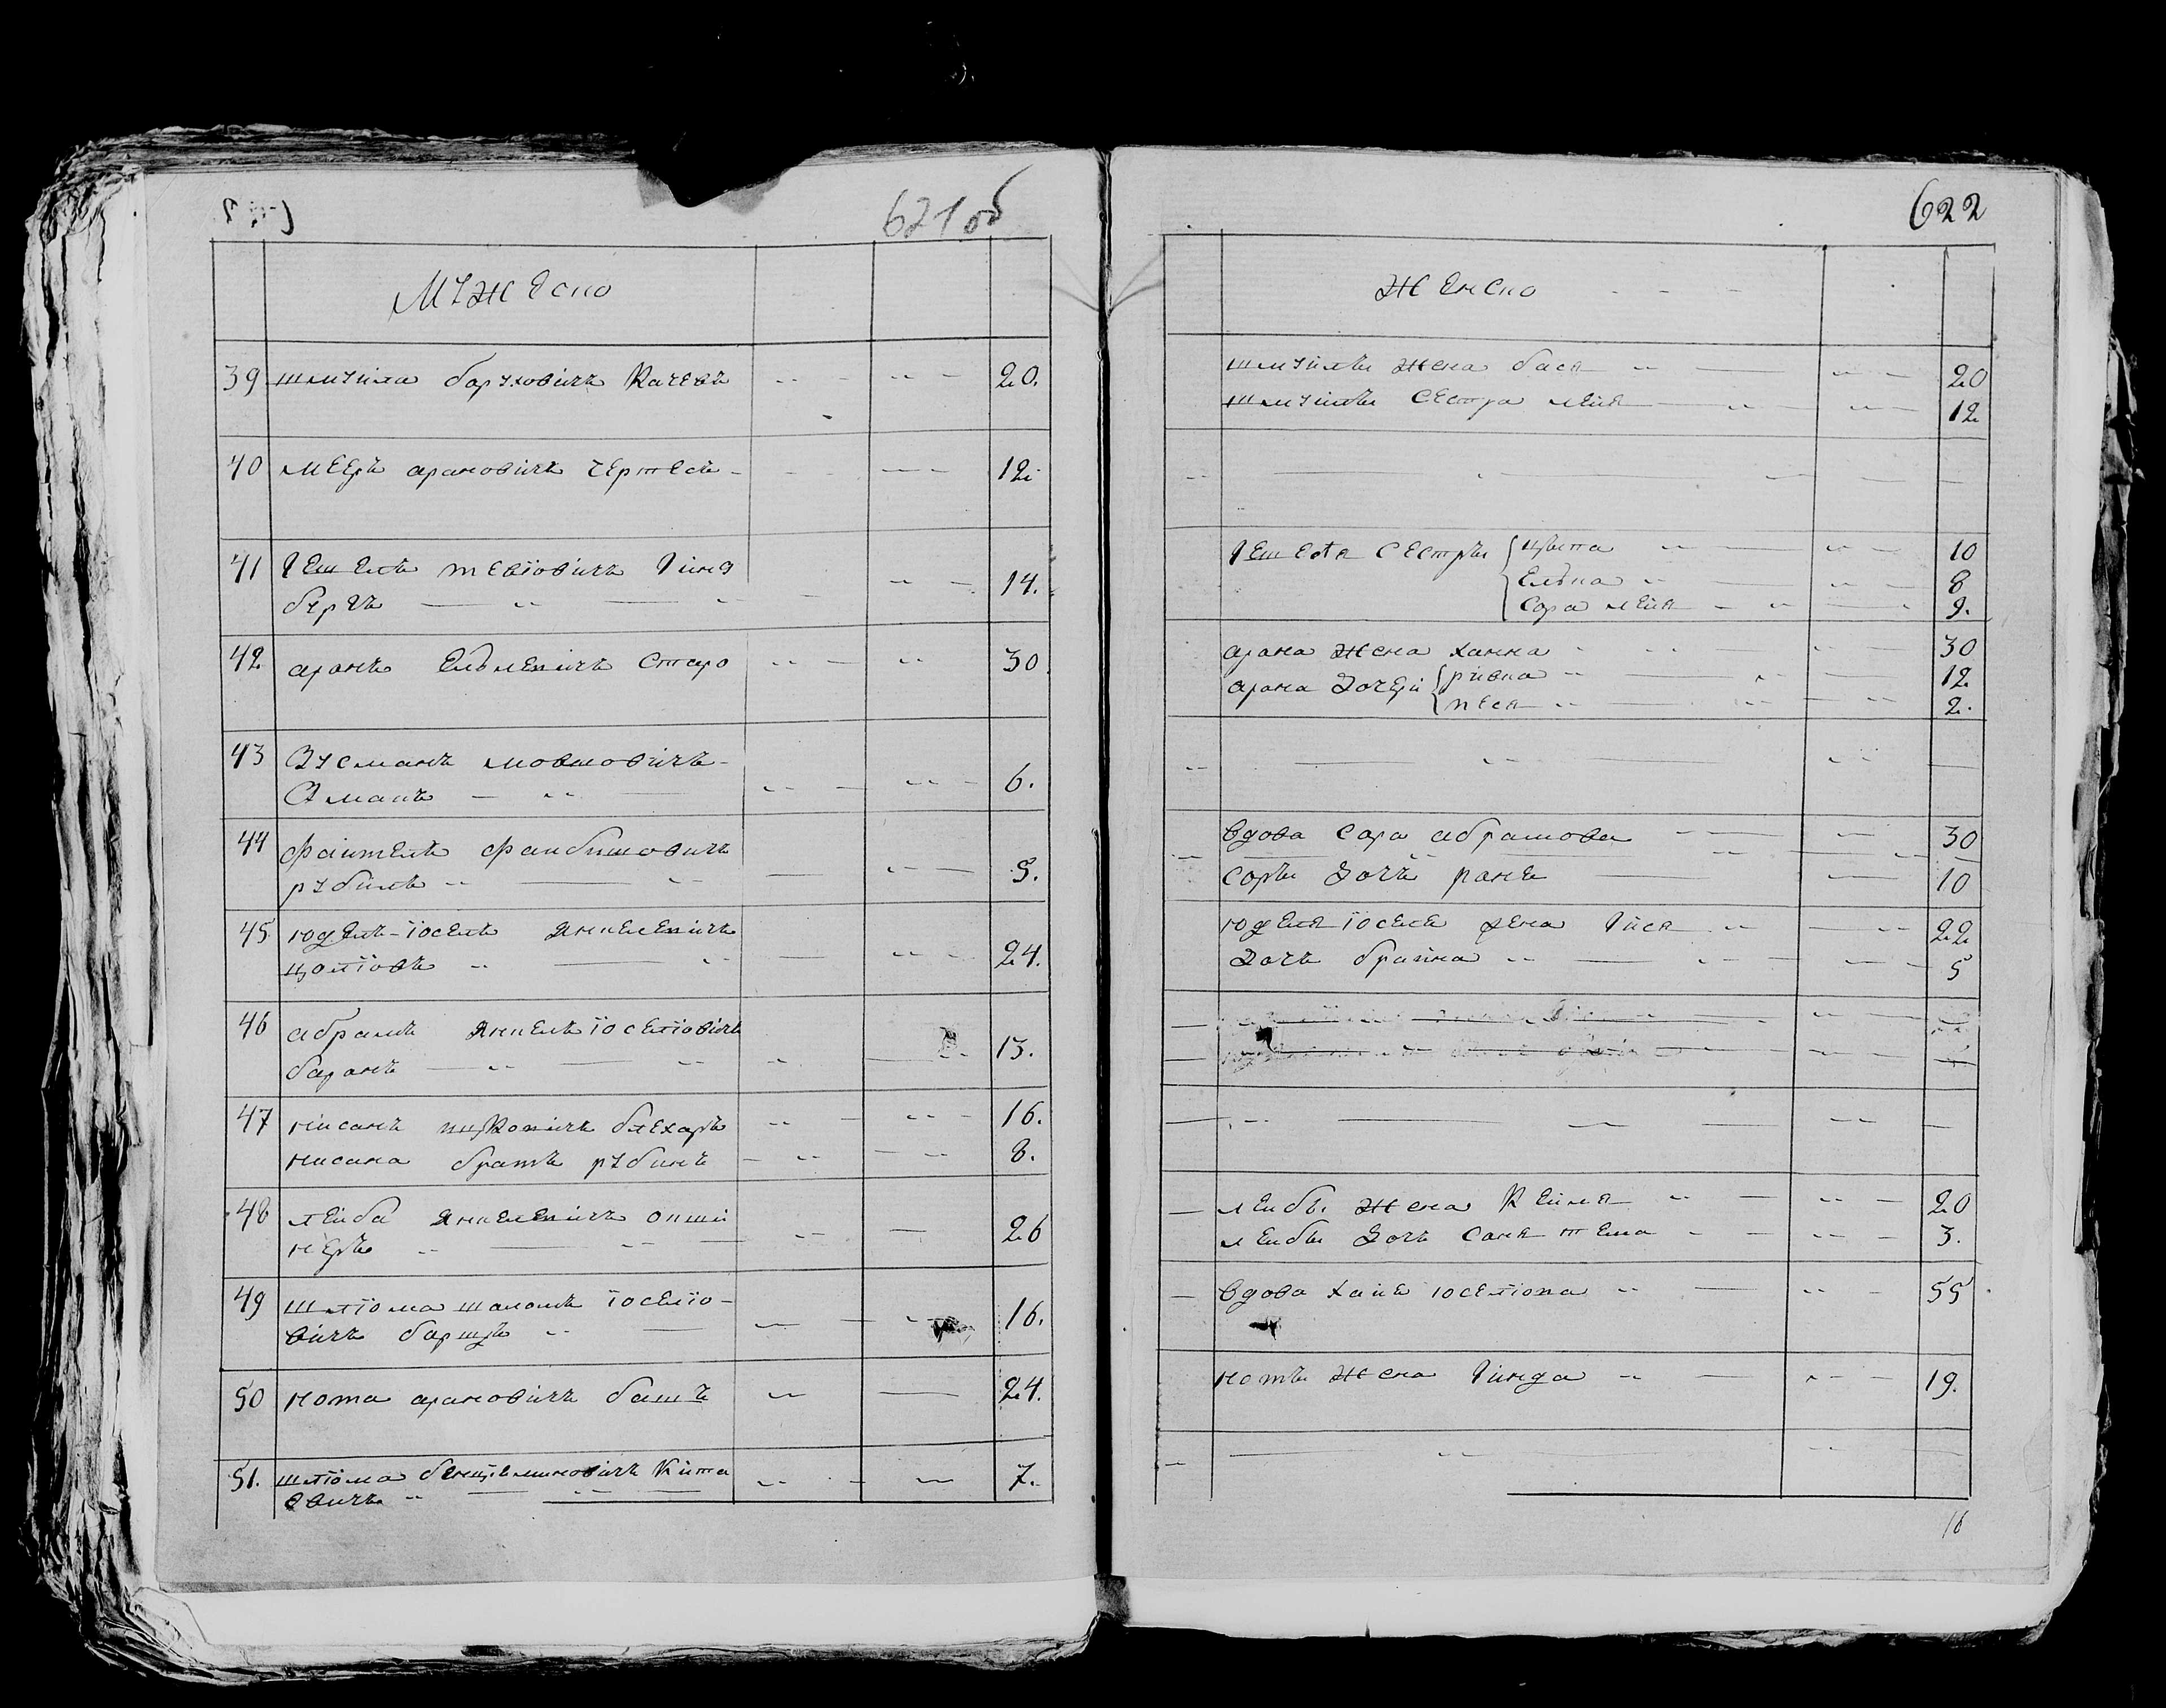 621 об
Мужеско
39 шмуила барухович Качевъ 20.
40 меерь арановичь Чертесъ 12
41 Гешель тевiовичь Гинз
бургъ 14.
42 аранъ Ельлевичь Старо 30
43 Зусманъ мовшовичь
Алманъ 6.
44 Файтель Файбишовичь
рубинъ 5.
45 юдель-iосель Янкелевичь
цолтiовъ 24.
46 абрамъ Янкель iоселiовичь
баранъ 13.
47 нисанъ ицковичь блехарь 16.
нисана братъ рубинъ 8.
48 лейба Янкелевичь
неръ 26
49 шлiома шаломъ iоселiо-
вичь 16.
50 нота арановичь башъ 24.
51. шлiома бенцiеминовичь Кита
евичь 7.
622
Женско
шмуилы жена бася 20
шмуилы сестра лея 12
Гешеля сестры цыпа 10
Елька 8
Сора лея 9.
арана жена ханна 30
арана дочери ривка 12
песя 2.
вдова сора абрамова 30
соры дочь 10
юделя iоселя жена Гися 22
дочь брайна 5
лейбы жена Кейля 20
лейбы дочь соня тема 3.
вдова хане iоселiова 55
ноты жена Гинда 19.
16